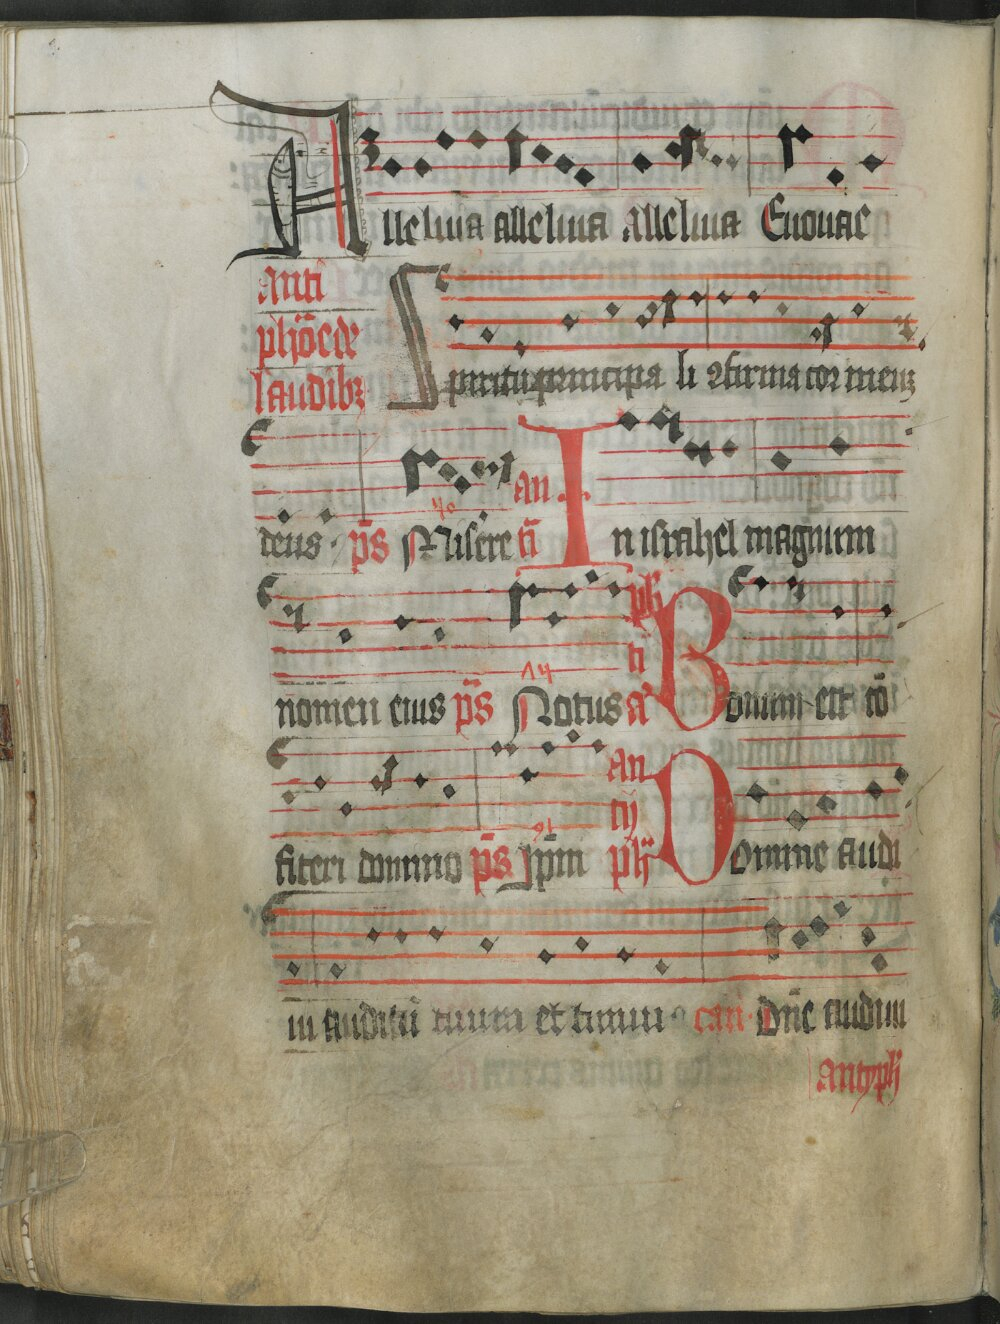 Alleluia alleluia alleluia Euouae
anti
phōe de
laudibꝫ
Spiritu principa li ꝯfirma cor meuꝫ
deus p̄s Misere an tā In israhel magnum
nomen eius p̄s Notus Bonum est cō
fiteri domino p̄s ip̄m an Domine audi
in auditū tuum et timui can Dn̄e audiui
antyph